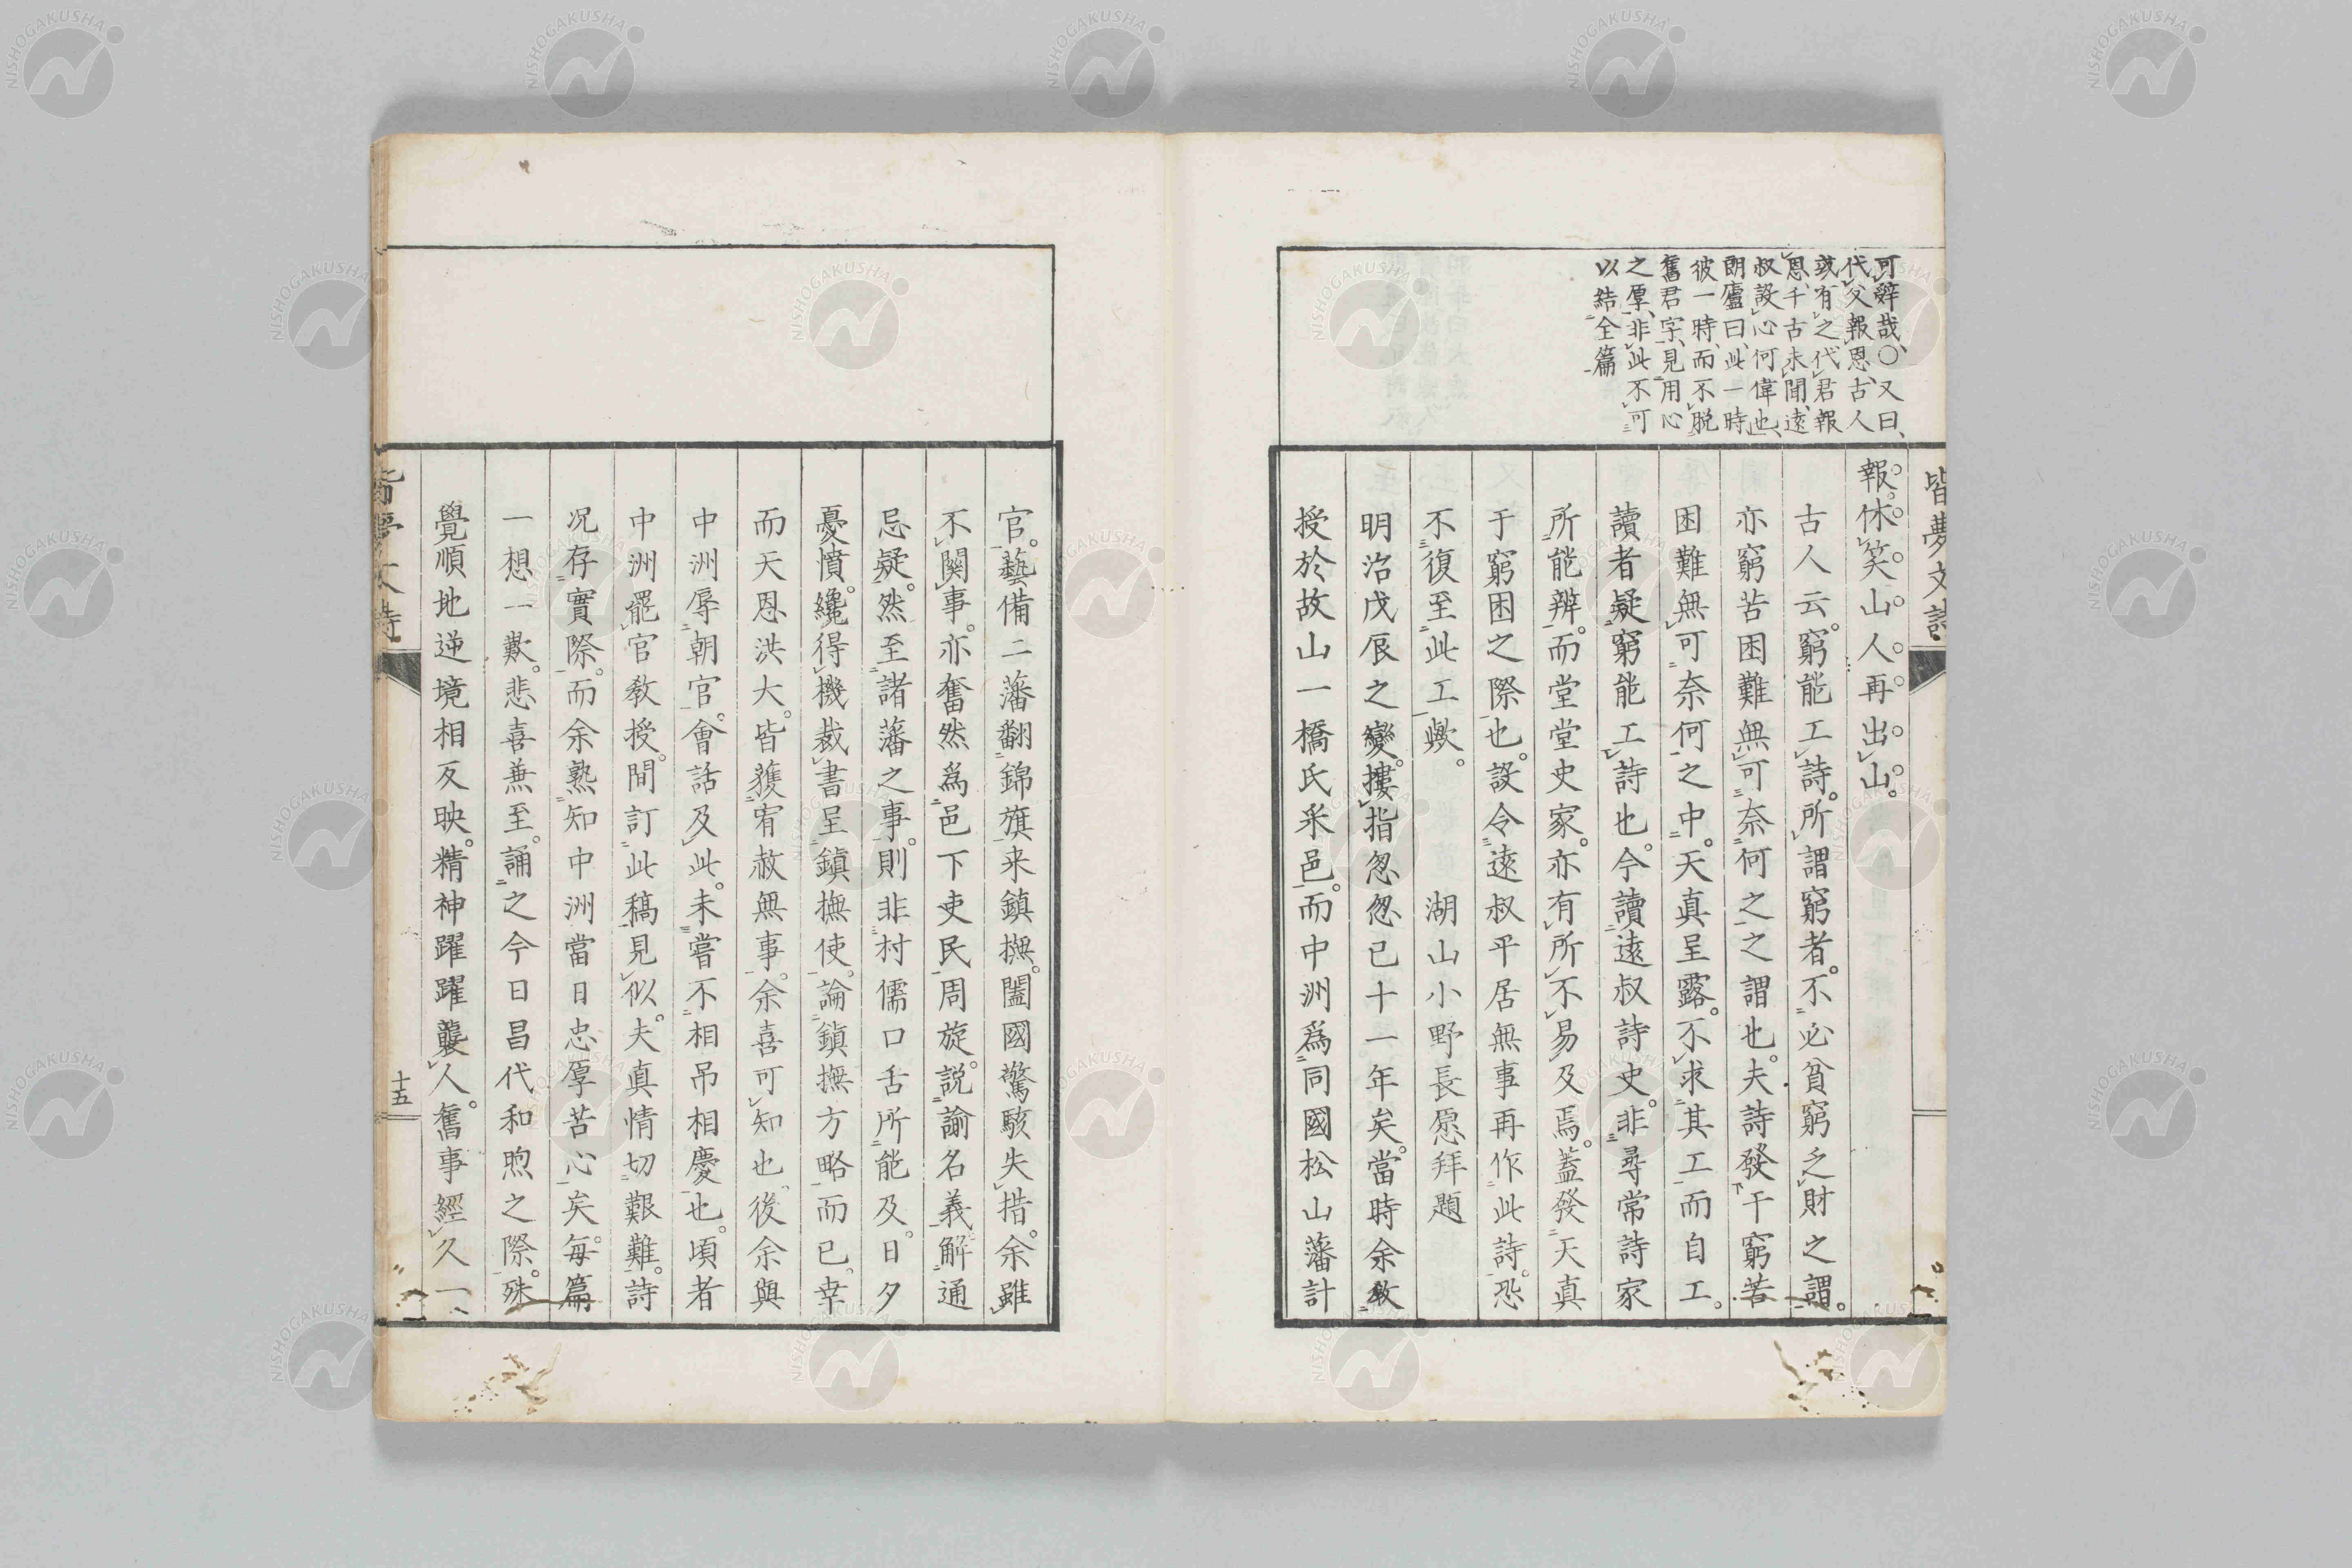 皆夢文詩
可辭哉、〇又曰、
代父報恩、古人
或有之、代君報
恩、千古未聞、遠
叔設心何偉也、
朗廬曰、此一時
彼一時、而不脫
舊君字、見用心
之厚、非此不可
以結全篇
報。休。笑。山。人。再。出。山。
古人云。窮能工詩。所謂窮者。不必貧窮乏財之謂。
亦窮苦困難無可奈何之之謂也。夫詩發于窮苦
困難無可奈何之中。天真呈露。不求其工而自工。
讀者疑窮能工詩也。今讀遠叔詩史。非尋常詩家
所能辨。而堂堂史家。亦有所不易及焉。蓋發天真
于窮困之際也。設令遠叔平居無事再作此詩。恐
不復至此工歟。　湖山小野長愿拜題
明治戊辰之變。摟指忽忽已十一年矣。當時余教
授於故山一橋氏采邑。而中洲為同國松山藩計
官。藝備二藩翻錦旗来鎮撫。闔國驚駭失措。余雖
不關事。亦奮然為邑下吏民周旋。説諭名義解通
忌疑。然至諸藩之事。則非村儒口舌所能及。日夕
憂憤。纔得機裁書呈鎮撫使。論鎮撫方略而已。幸
而天恩洪大。皆獲宥赦無事。余喜可知也。後余與
中洲辱朝官。會話及此。未嘗不相吊相慶也。頃者
中洲罷官教授。間訂此稿見似。夫真情切艱難。詩
況存實際。而余熟知中洲當日忠厚苦心矣。每篇
一想一歎。悲喜無至。誦之今日昌代和煦之際。殊
覺順地逆境相反映。精神躍躍襲人。舊事經久一
皆夢文詩
十五
NISHOGAKUSHA